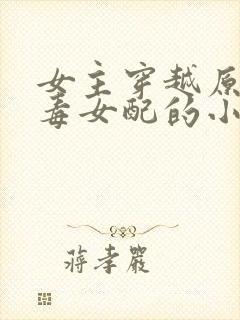 女主穿越原
毒女配的小
蒋孝严